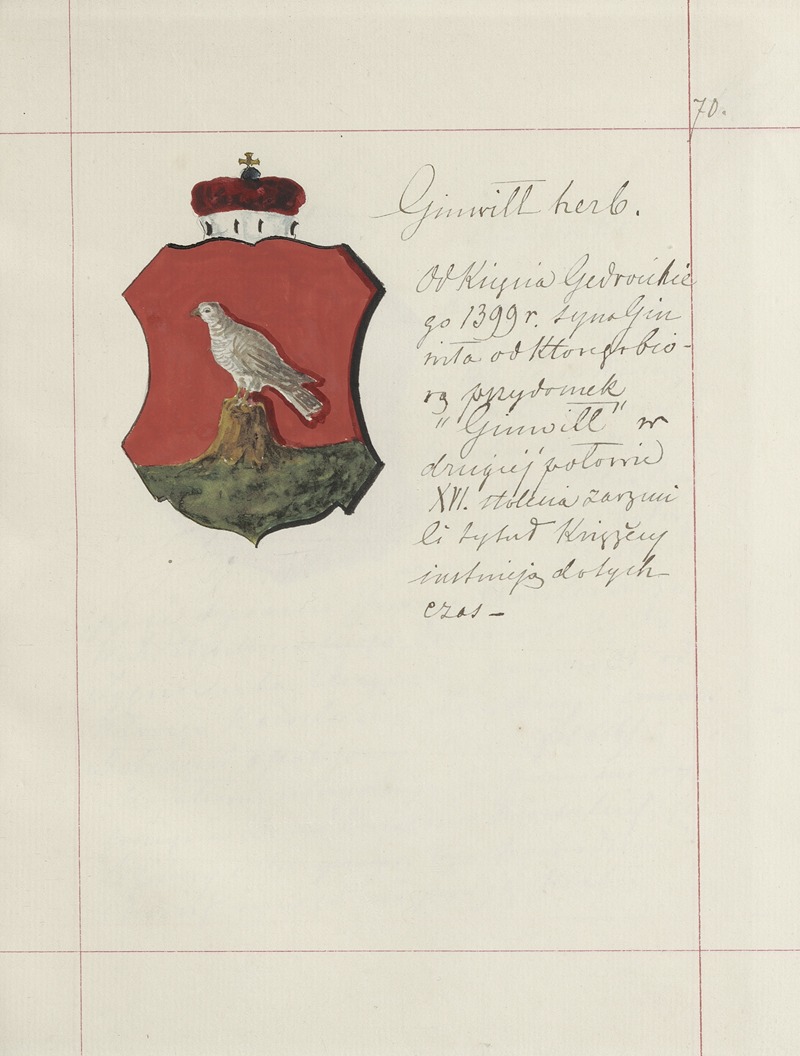 70.
Ginwiłł herb.
Od Kięcia Gedrońckie
go 1399 r. syna Gin
wiła od którego bio-
rą przydomek
"Ginwiłł" w
drugiej połowie
XVI. stolecia zarzuci
li tytuł Książęcy
instnieją dotych
czas –